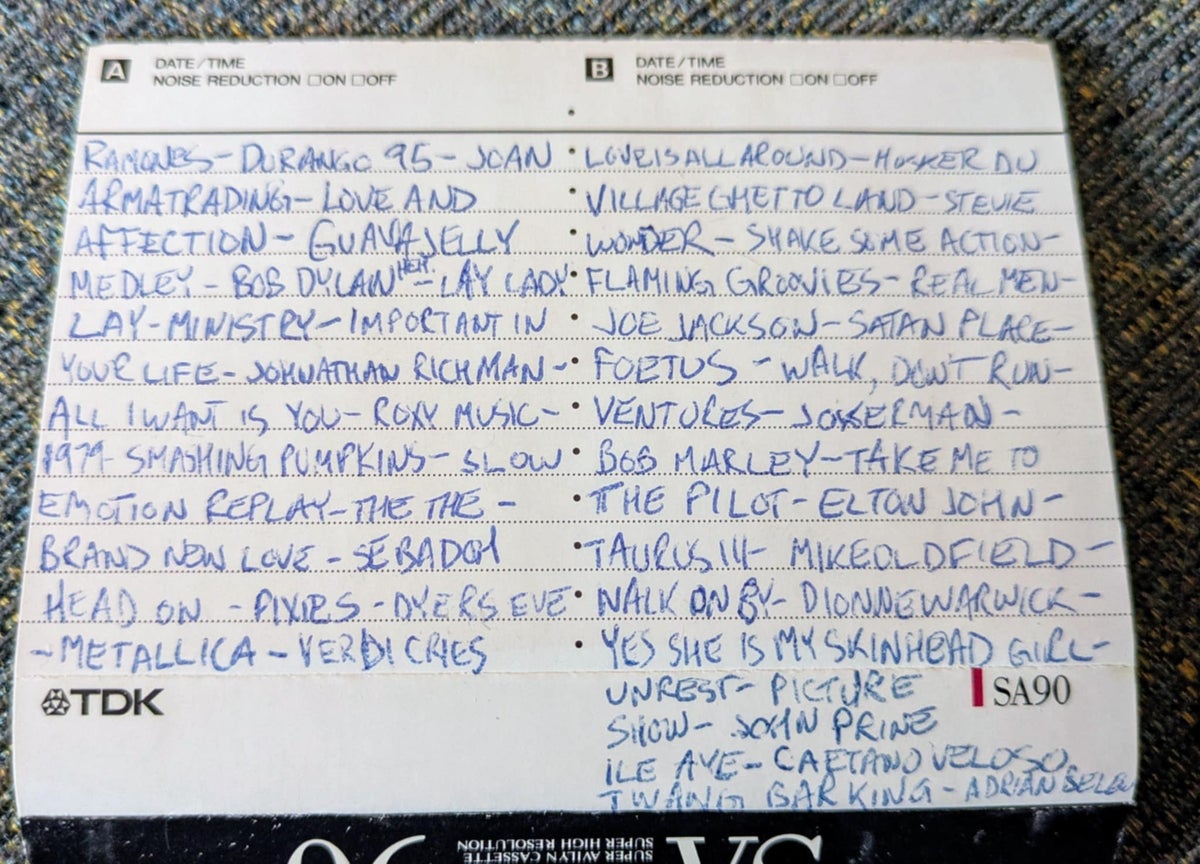 A DATE/TIME
NOISE REDUCTION □ON □OFF
RAMONES - DURANGO 95 - JOAN
ARMATRADING - LOVE AND
AFFECTION - GUAVA JELLY
MEDLEY - BOB DYLAN - LAY LADY
LAY - MINISTRY - IMPORTANT IN
YOUR LIFE - JOHNATHAN RICHMAN -
ALL I WANT IS YOU - ROXY MUSIC -
1979 - SMASHING PUMPKINS - SLOW
EMOTION REPLAY - THE THE -
BRAND NEW LOVE - SEBADOH
HEAD ON - PIXIES - DYERS EVE
- METALLICA - VERDI CRIES
TDK
B DATE/TIME
NOISE REDUCTION □ON □OFF
LOVE IS ALL AROUND - HUSKER DU
VILLAGE GHETTO LAND - STEVIE
WONDER - SHAKE SOME ACTION -
FLAMING GROOVIES - REAL MEN -
JOE JACKSON - SATAN PLACE -
FOETUS - WALK, DON'T RUN -
VENTURES - JOKERMAN -
BOB MARLEY - TAKE ME TO
THE PILOT - ELTON JOHN -
TAURUS III - MIKE OLDFIELD -
WALK ON BY - DIONNE WARWICK -
YES SHE IS MY SKINHEAD GIRL -
UNREST - PICTURE
SHOW - JOHN PRINE
ILE AYE - CAETANO VELOSO
TWANG BAR KING - ADRIAN BELEW
SA90
SUPER AVILYN CASSETTE
SUPER HIGH RESOLUTION